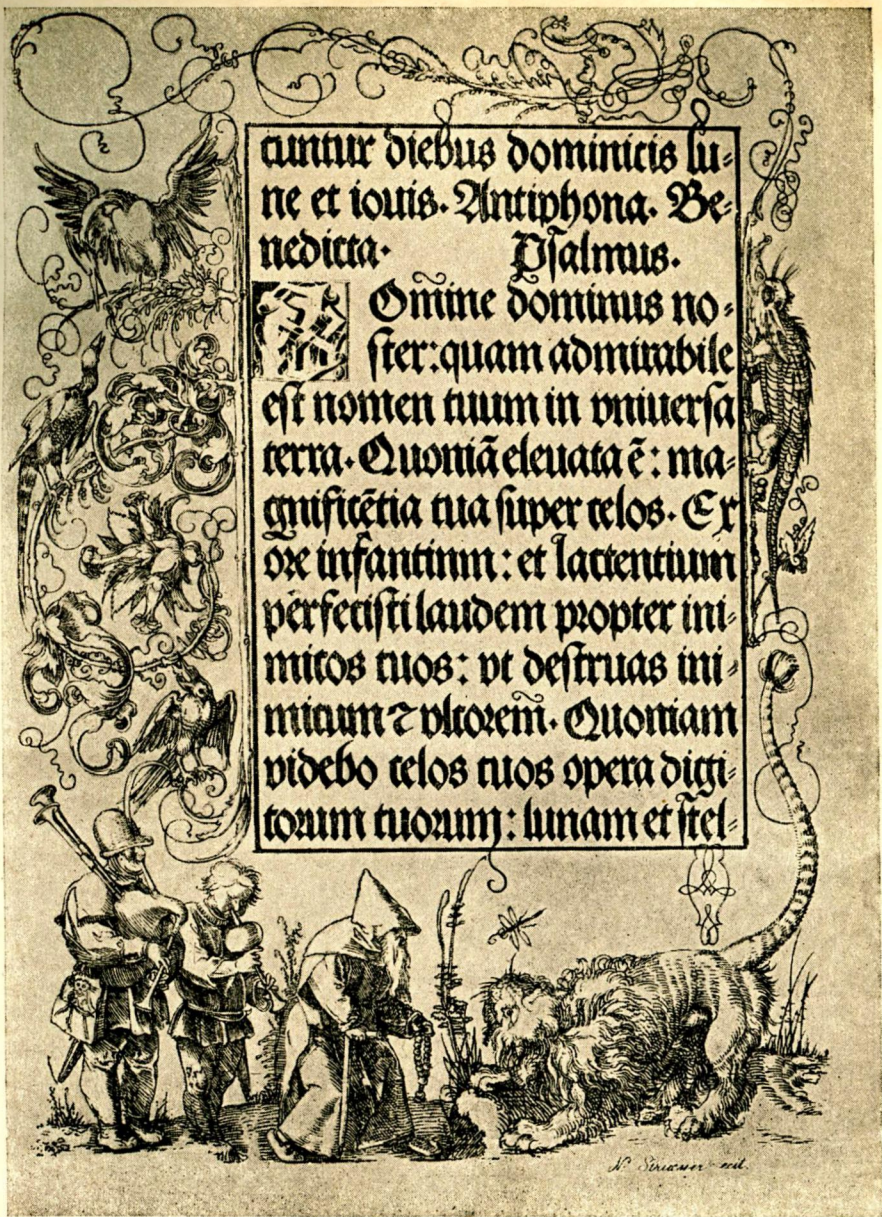 cuntur diebus dominicis lu-
ne et iouis. Antiphona. Be-
nedicta. Psalmus.
Om̃ine dominus no-
ster: quam admirabile
est nomen tuum in vniuersa
terra. Quoniã eleuata ẽ: ma-
gnificẽtia tua super celos. Ex
ore infantinm: et lactentium
perfecisti laudem propter ini-
micos tuos: vt destruas ini-
micum ⁊ vltorem̃. Quoniam
videbo celos tuos opera digi-
torum tuorum: lunam et stel-
N.